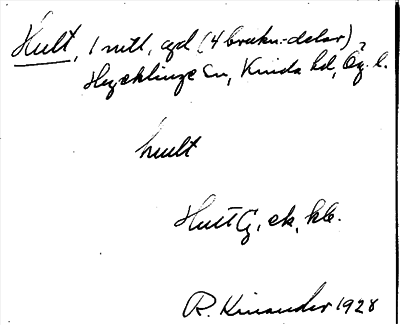 Hult, 1 mtl, gd (4 brukn.-delar)
Hycklinge sn, Kinda hd, Ög. l.
hult
Hult G, ek, hle.
R. Kinander 1928